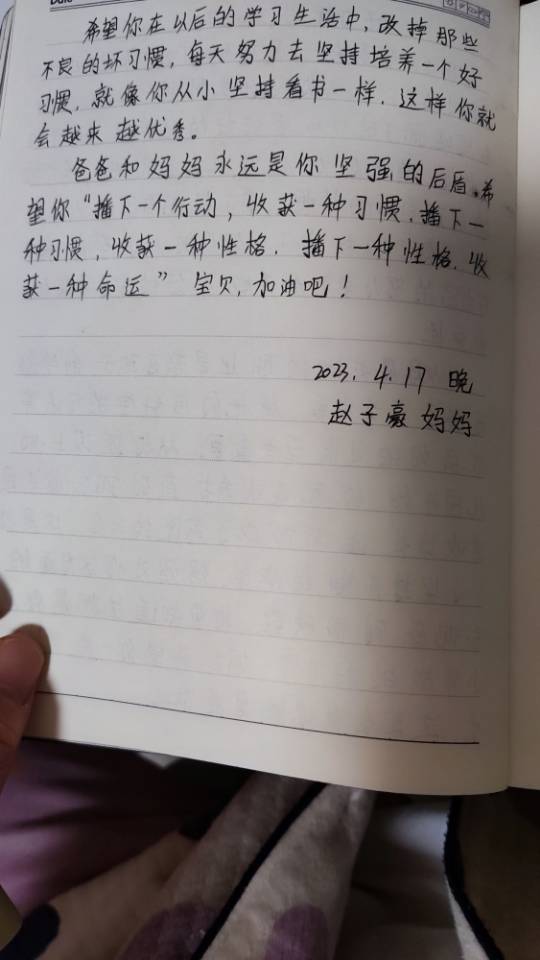 希望你在以后的学习生活中,改掉那些
不良的坏习惯,每天努力去坚持培养一个好
习惯,就像你从小坚持看书一样.这样你就
会越来越优秀。
爸爸和妈妈永远是你坚强的后盾.希
望你“播下一个行动,收获一种习惯.播下一
种习惯,收获一种性格.播下一种性格.收
获一种命运”宝贝,加油吧!
2023.4.17晚
赵子豪妈妈